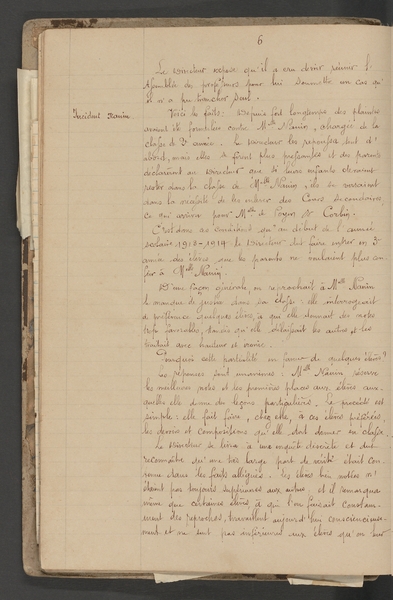 6
Le Directeur expose qu'il a cru devoir réunir l'
Assemblée des professeurs pour lui soumettre un cas qu'
il n'a pu trancher seul.
Incident Nanin
Voici les faits: Depuis fort longtemps des plaintes
avaient été formulées contre Melle Nanin, chargée de la
classe de 3e année. Le Directeur les repoussa tout d'
abord, mais elles se firent plus pressantes et des parents
déclarèrent au Directeur que si leurs enfants devaient
rester dans la classe de Melle Nanin, ils se verraient
dans la nécessité de les retirer des Cours Secondaires,
ce qui arriva pour Melles de et Corbin.
C'est dans ces conditions qu'au début de l'année
scolaire 1918-1919 le Directeur dut faire entrer en 3e
année des élèves que les parents ne voulaient plus con-
fier à Melle Nanin.
D'une façon générale, on reprochait à Melle Nanin
de manquer de justice dans sa classe: elle interrogeait
de préférence quelques élèves, à qui elle donnait des notes
très favorables, tandis qu'elle délaissait les autres, et les
traitait avec hauteur et ironie.
Pourquoi cette partialité en faveur de quelques élèves?
Les réponses sont unanimes: Melle Nanin réserve
les meilleures notes et les premières places aux élèves aux-
quelles elle donne des leçons particulières. Le procédé est
simple: elle fait faire, chez elle, à ces élèves préférées,
les devoirs et compositions qu'elle doit donner en classe.
Le Directeur se livra à une enquête discrète et dut
reconnaître qu'une très large part de vérité était con-
tenue dans les faits allégués. Les élèves bien notées n'
étaient pas toujours supérieures aux autres, et il remarqua
même que certaines élèves à qui l'on faisait constam-
ment des reproches, travaillent aujourd'hui consciencieuse-
ment et ne sont pas inférieures aux élèves qu'on leur